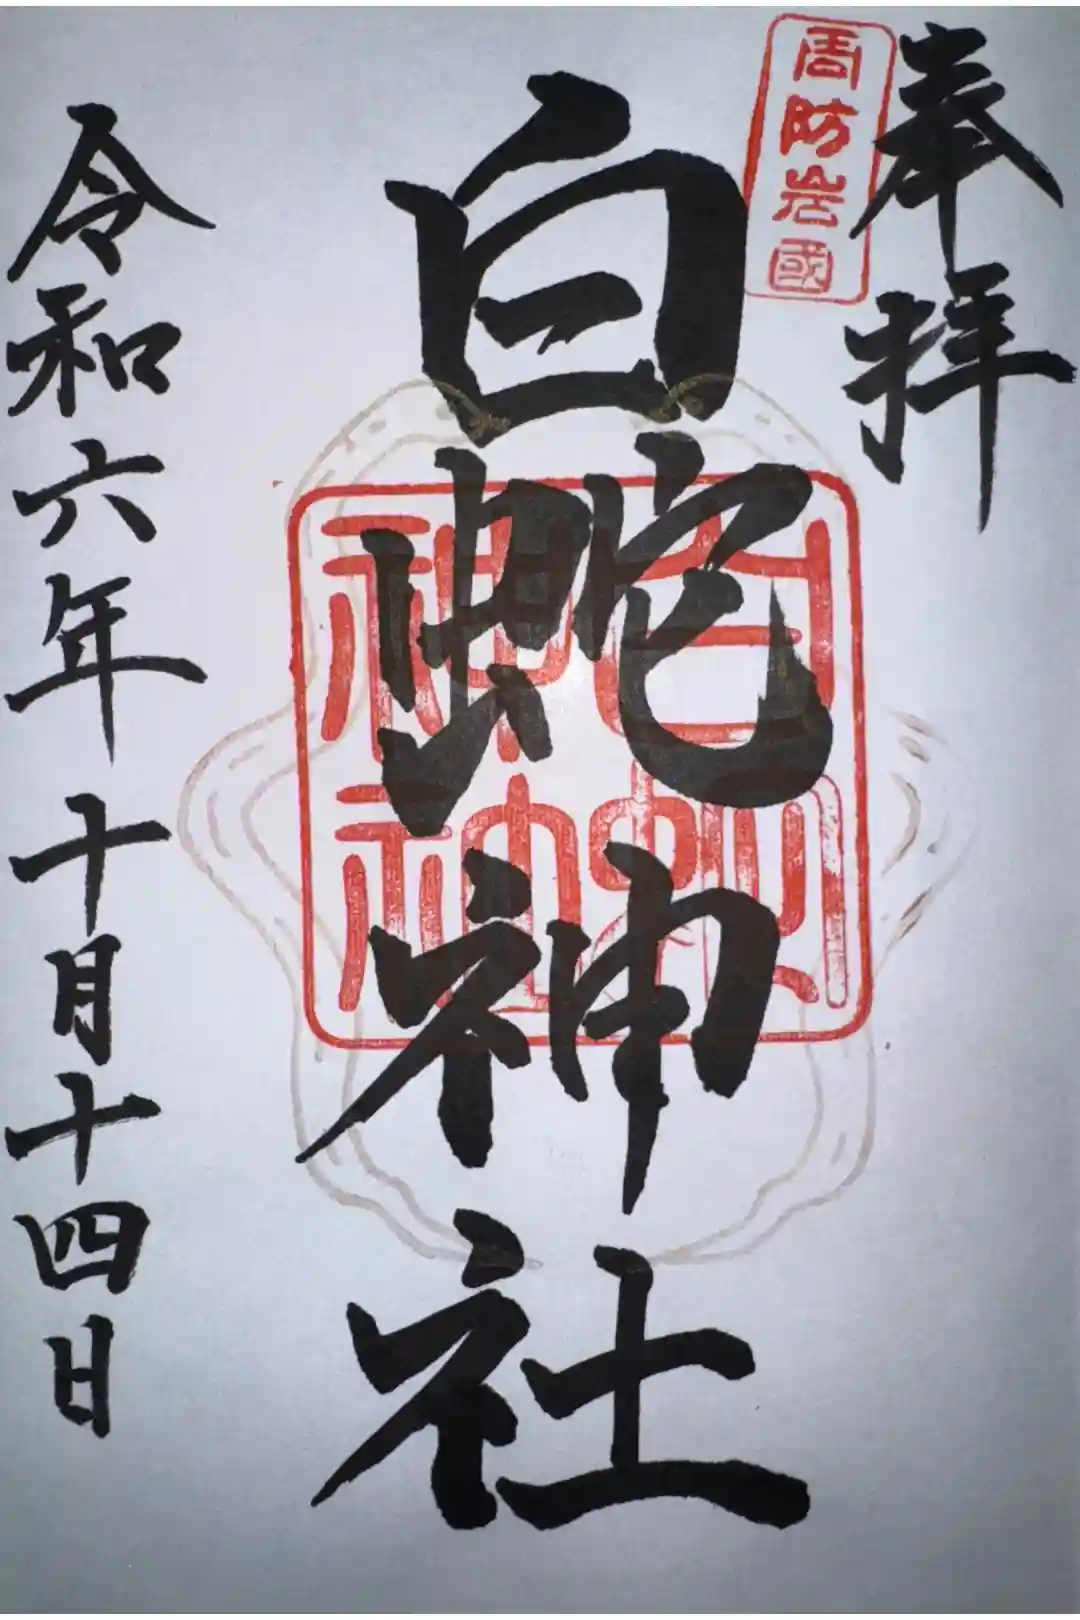 奉拝
周防岩國
白蛇神社
白蛇
神社
令和六年十月十四日